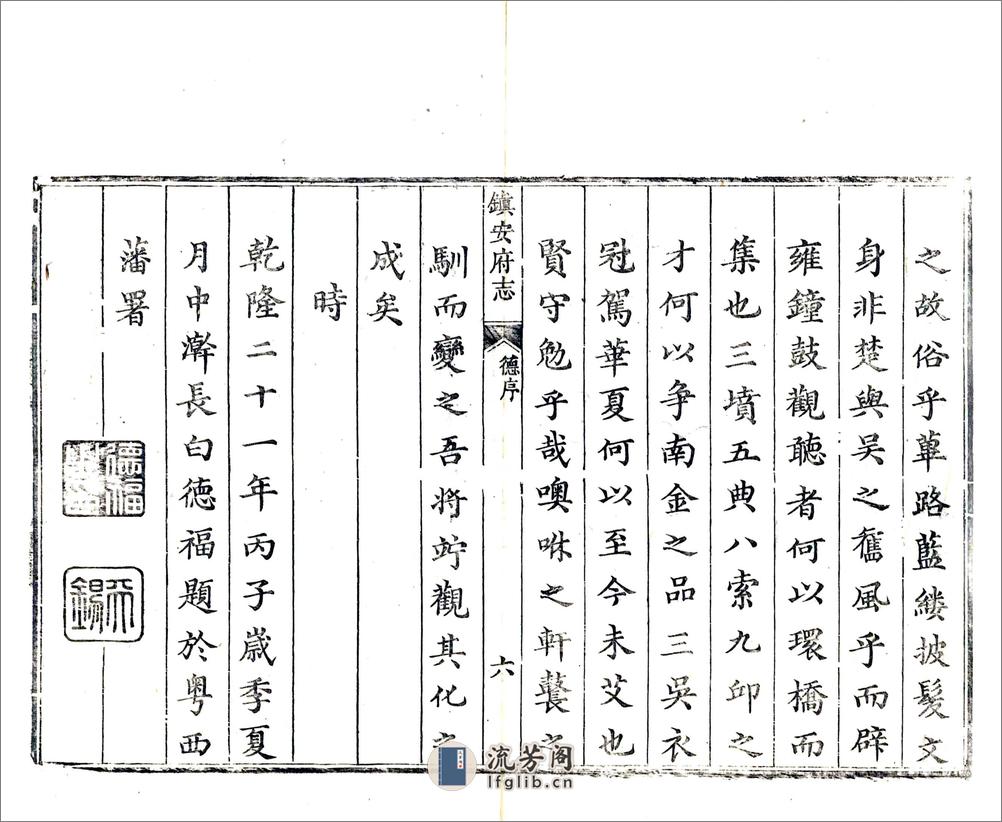 之故俗乎蓽路藍縷披髮文
身非楚與吳之舊風乎而辟
雍鐘鼓觀聽者何以環橋而
集也三墳五典八索九邱之
才何以争南金之品三吳衣
冠駕華夏何以至今未艾也
賢守勉乎哉噢咻之軒鼚之
鎮安府志
德序
六
馴而變之吾将竚觀其化之
成矣
時
乾隆二十一年丙子嵗季夏
月中澣長白德福題於粤西
藩署
德福
天錫
流芳阁
lfglib.cn